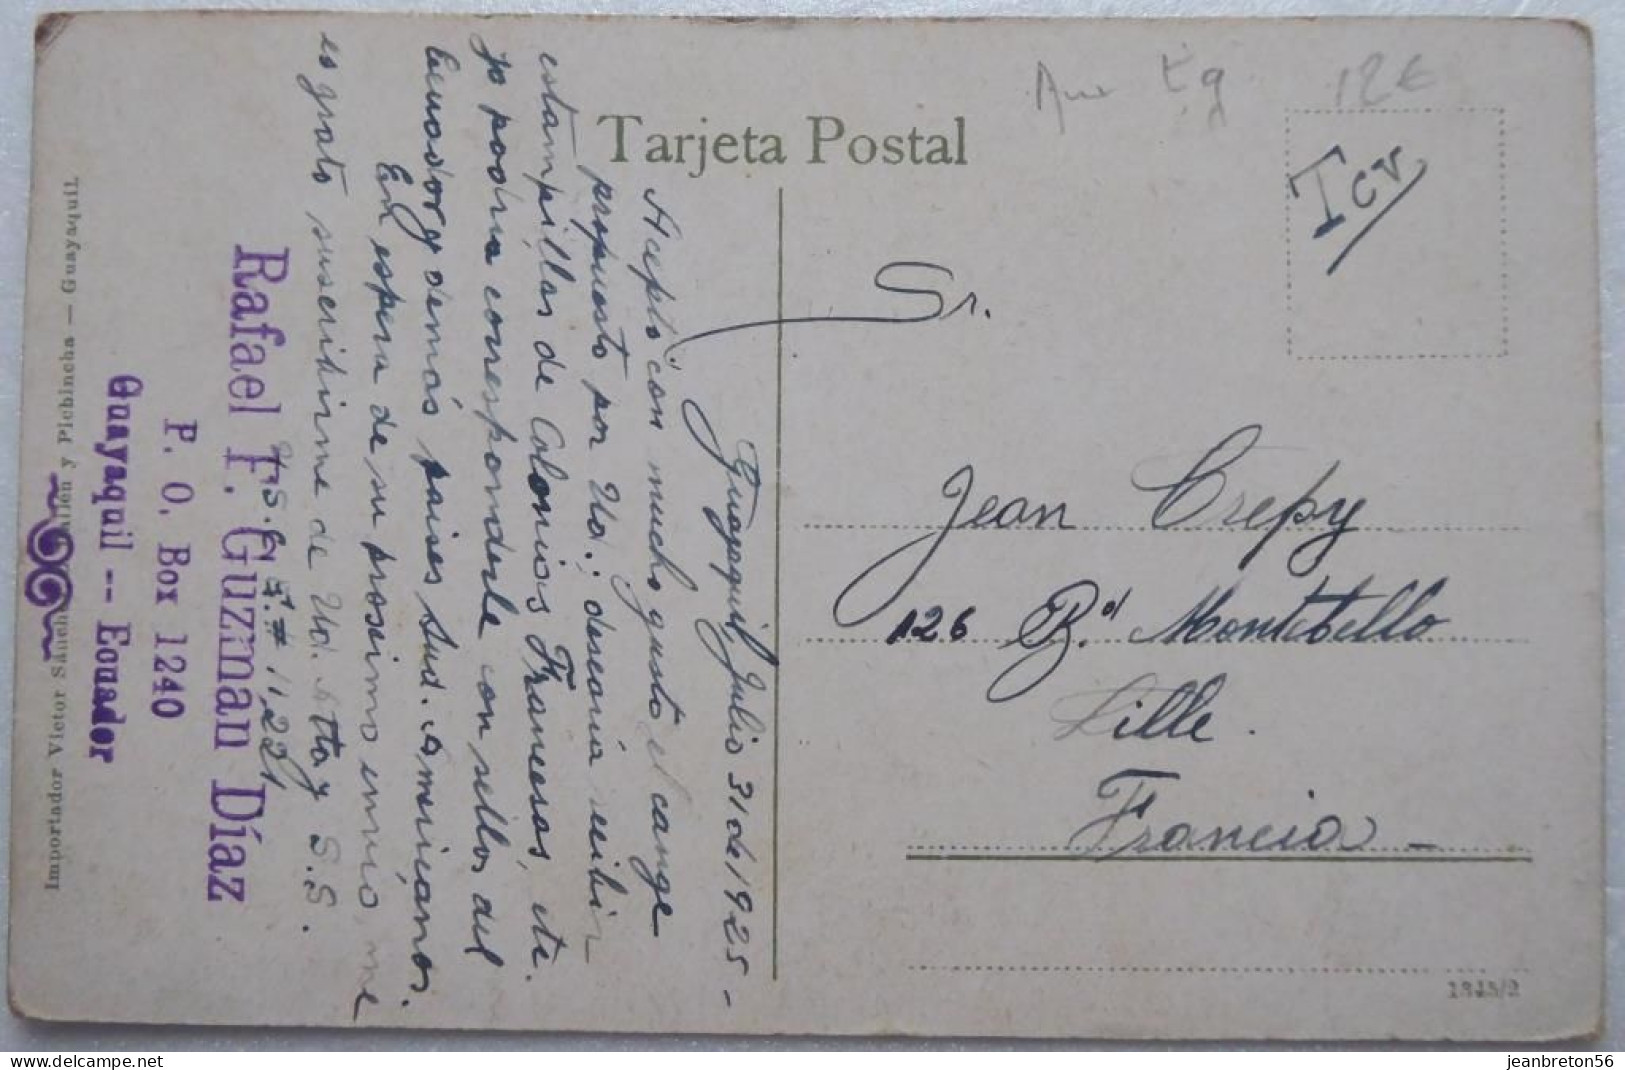 Tarjeta Postal
12€
Tcv
Guayaquil Julio 31 de 1925 -
Acepto con mucho gusto el cange
propuesto por Ud.; desearía recibir
estampillas de Colonias Francesas, etc.
yo podria corresponderle con sellos del
Ecuador y demás paises Sud. Americanos.
En espera de su proximo envio, me
es grato suscribirme de Ud. Atto y S.S.
# 11,221
Rafael F. Guzmán Díaz
P. O. Box 1240
Guayaquil -- Ecuador
Importador Victor Sánchez y Pichincha — Guayaquil.
Sr.
Jean Crepy
126 Bd. Montebello
Lille.
Francia -
1845/2
delcampe.net
jeanbreton56